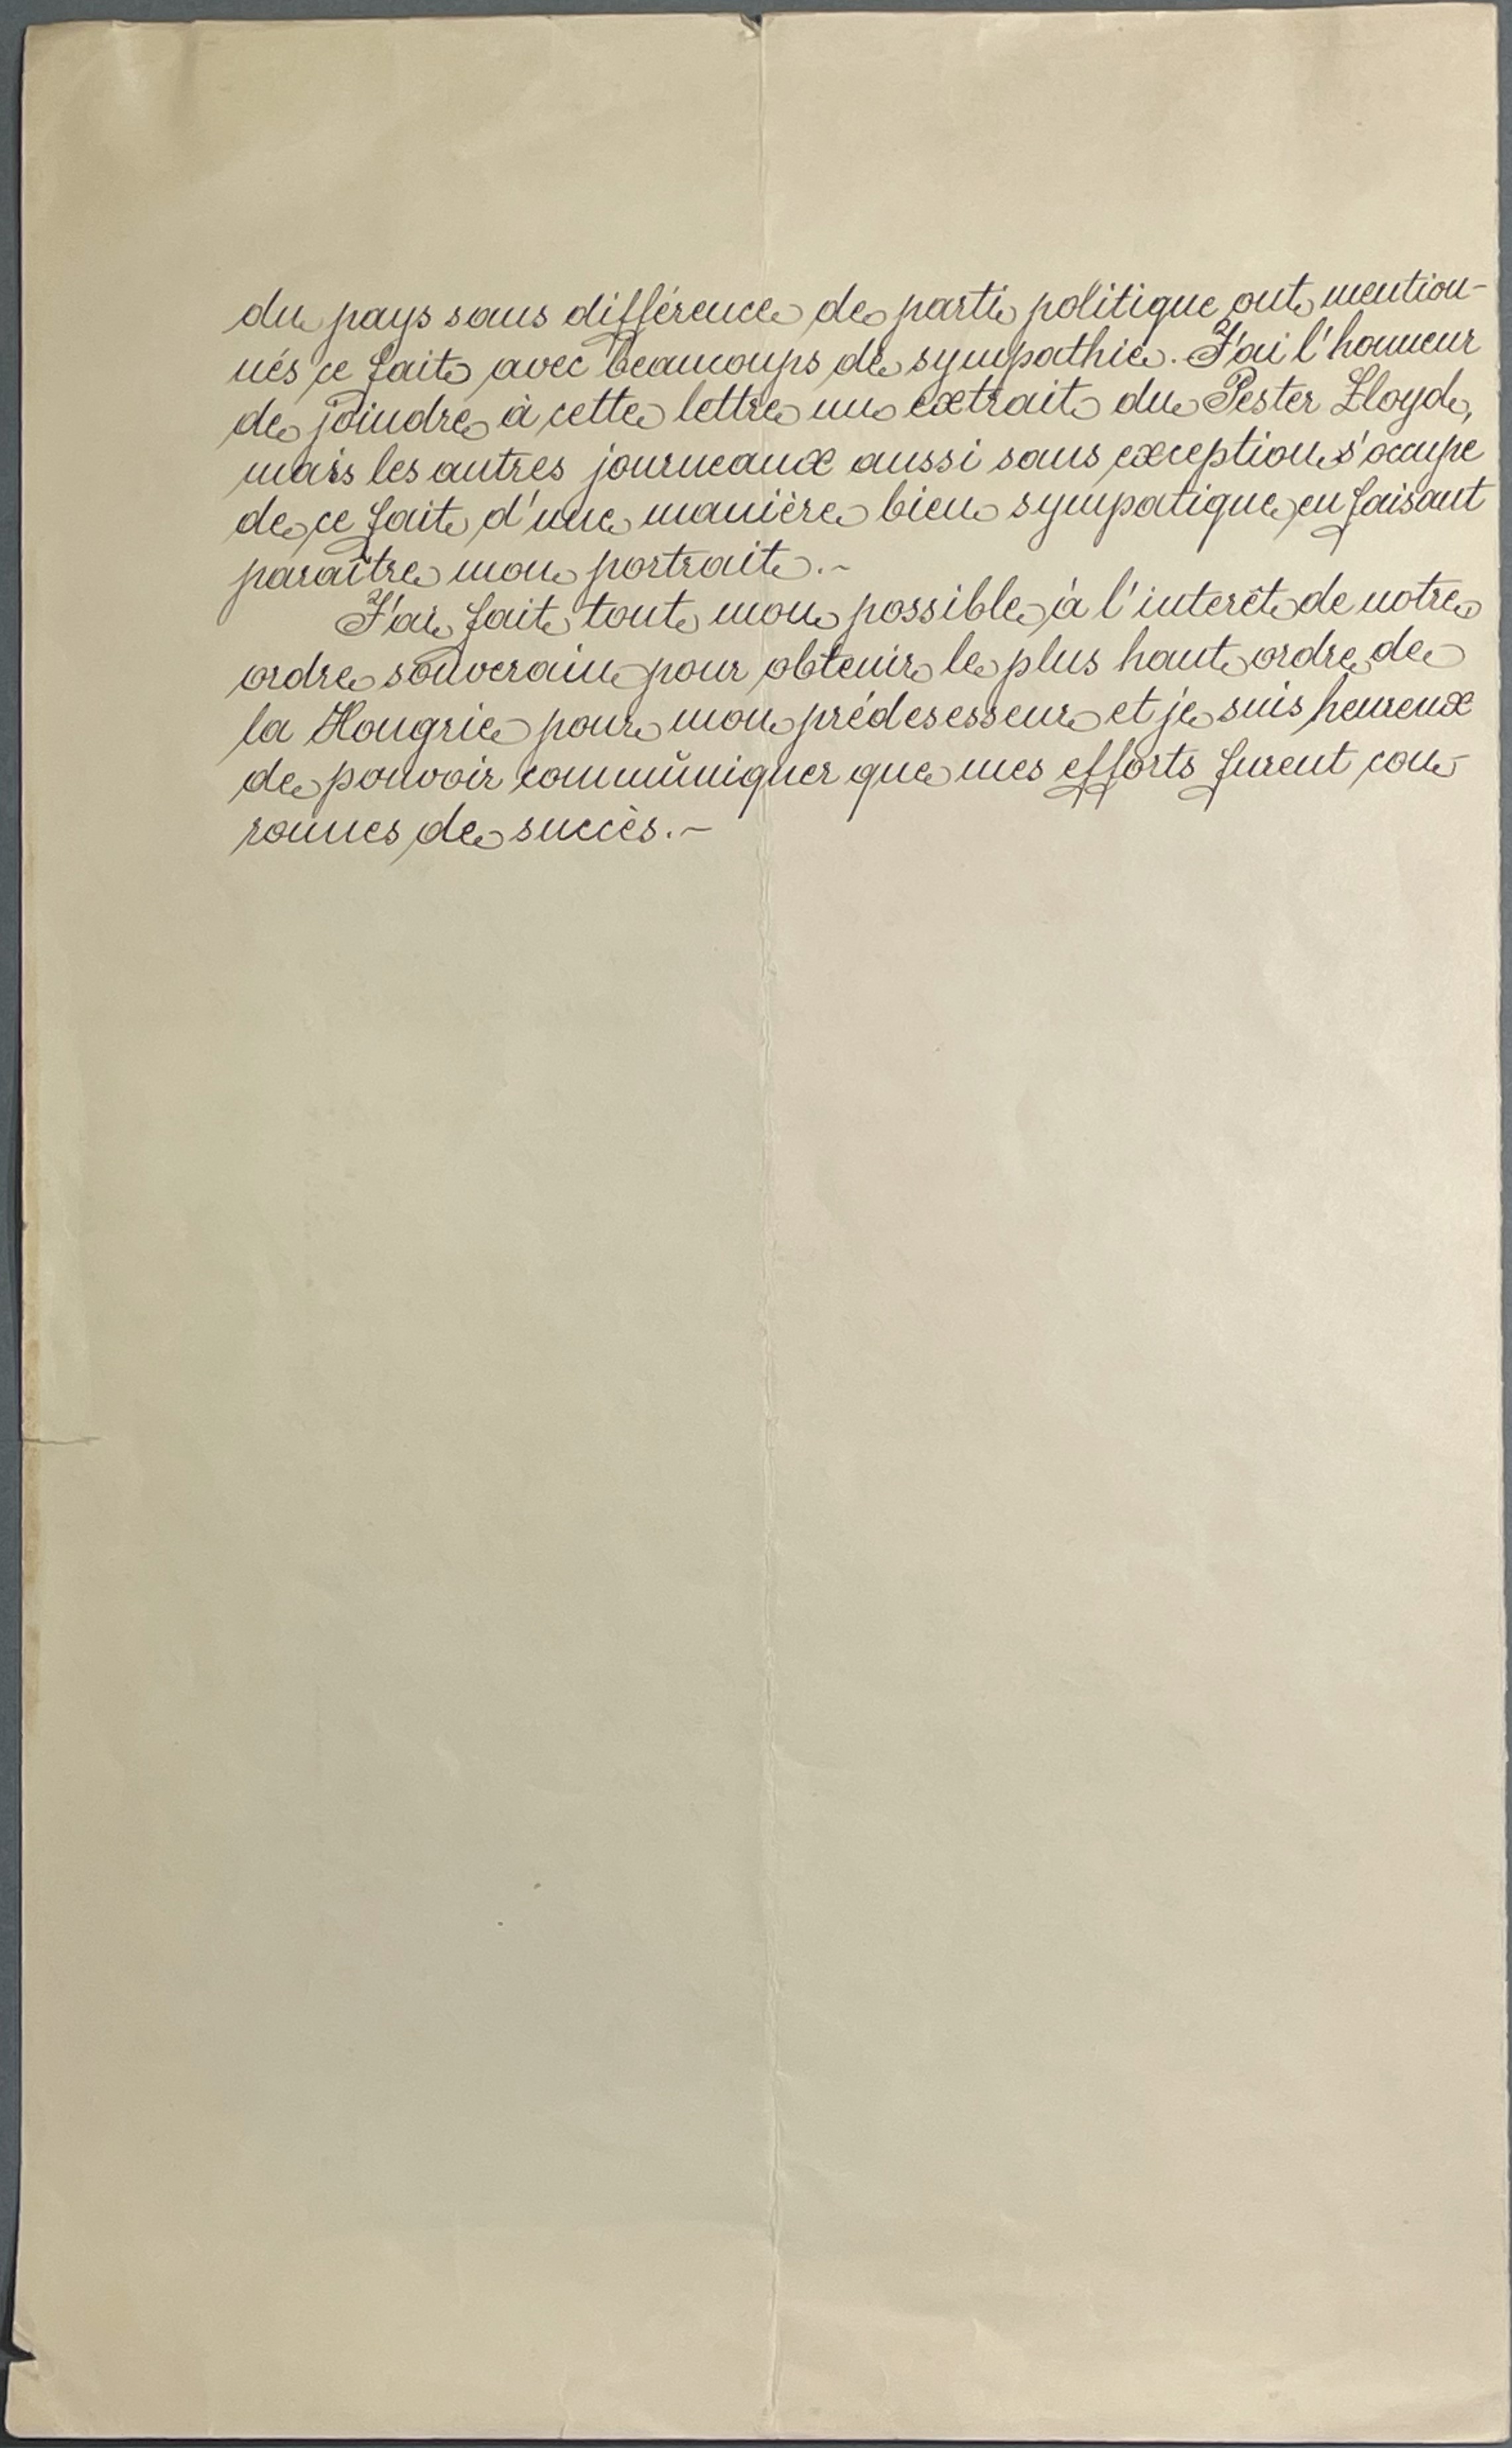 du pays sans différence de parti politique ont mention-
nés ce fait avec beaucoups de sympathie. J'ai l'honneur
de joindre à cette lettre un extrait du Pester Lloyd,
mais les autres journeaux aussi sans exception s'occupe
de ce fait d'une manière bien sympatique en faisant
paraître mon portrait.-
J'ai fait tout mon possible à l'interêt de notre
ordre souverain pour obtenir le plus haut ordre de
la Hongrie pour mon prédesesseur et je suis heureux
de pouvoir communiquer que mes efforts furent cou-
ronnes de succès.-